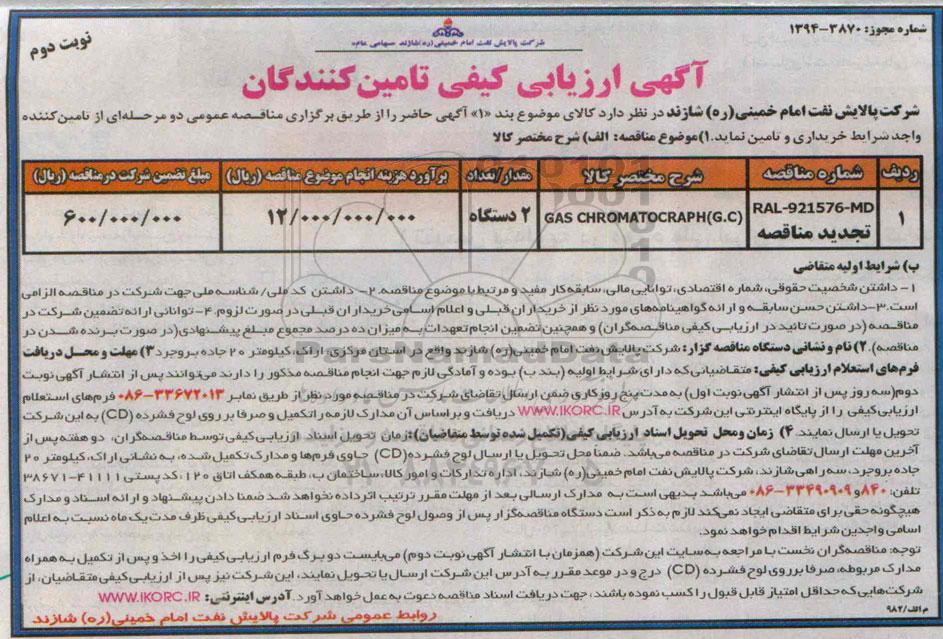 شماره مجوز: ۳۸۷۰-۱۳۹۴
نوبت دوم
شرکت پالایش نفت امام خمینی (ره) شازند «سهامی عام»
آگهی ارزیابی کیفی تامین‌کنندگان
شرکت پالایش نفت امام خمینی(ره) شازند در نظر دارد کالای موضوع بند «۱» آگهی حاضر را از طریق برگزاری مناقصه عمومی دو مرحله‌ای از تامین‌کننده
واجد شرایط خریداری و تامین نماید. ۱)موضوع مناقصه: الف) شرح مختصر کالا
ردیف شماره مناقصه شرح مختصر کالا مقدار/تعداد برآورد هزینه انجام موضوع مناقصه (ریال) مبلغ تضمین شرکت در مناقصه (ریال)
۱ RAL-921576-MD تجدید مناقصه GAS CHROMATOCRAPH(G.C) ۲ دستگاه ۱۲/۰۰۰/۰۰۰/۰۰۰ ۶۰۰/۰۰۰/۰۰۰
ب) شرایط اولیه متقاضی
۱- داشتن شخصیت حقوقی، شماره اقتصادی، توانایی مالی، سابقه کار مفید و مرتبط با موضوع مناقصه. ۲- داشتن کد ملی/ شناسه ملی جهت شرکت در مناقصه الزامی
است. ۳-داشتن حسن سابقه و ارائه گواهینامه‌های مورد نظر از خریداران قبلی و اعلام اسامی خریداران قبلی در صورت لزوم. ۴- توانائی ارائه تضمین شرکت در
مناقصه (در صورت تائید در ارزیابی کیفی مناقصه‌گران) و همچنین تضمین انجام تعهدات به میزان ده درصد مجموع مبلغ پیشنهادی(در صورت برنده شدن در
مناقصه). ۲) نام و نشانی دستگاه مناقصه گزار: شرکت پالایش نفت امام خمینی(ره) شازند واقع در استان مرکزی، اراک، کیلومتر ۲۰ جاده بروجرد ۳) مهلت و محل دریافت
فرم‌های استعلام ارزیابی کیفی: متقاضیانی که دارای شرایط اولیه (بند ب) بوده و آمادگی لازم جهت انجام مناقصه مذکور را دارند می‌توانند پس از انتشار آگهی نوبت
دوم(سه روز پس از انتشار آگهی نوبت اول) به مدت پنج روز کاری ضمن ارسال تقاضای شرکت در مناقصه مورد نظر از طریق نمابر ۳۳۶۷۲۰۱۳-۰۸۶ فرم‌های استعلام
ارزیابی کیفی را از پایگاه اینترنتی این شرکت به آدرس WWW.IKORC.IR دریافت و بر اساس آن مدارک لازمه را تکمیل و صرفا بر روی لوح فشرده (CD) به این شرکت
تحویل یا ارسال نمایند. ۴) زمان و محل تحویل اسناد ارزیابی کیفی(تکمیل شده توسط متقاضیان): زمان تحویل اسناد ارزیابی کیفی توسط مناقصه‌گران، دو هفته پس از
آخرین مهلت ارسال تقاضای شرکت در مناقصه می‌باشد. ضمنا محل تحویل یا ارسال لوح فشرده (CD) حاوی فرم‌ها و مدارک تکمیل شده، به نشانی اراک، کیلومتر ۲۰
جاده بروجرد، سه راهی شازند، شرکت پالایش نفت امام خمینی(ره) شازند، اداره تدارکات و امور کالا، ساختمان ب، طبقه همکف اتاق ۱۲۰، کد پستی ۴۱۱۱۱-۳۸۶۷۱
تلفن: ۸۴۰و ۳۳۴۹۰۹۰۹-۰۸۶ می‌باشد بدیهی است به مدارک ارسالی بعد از مهلت مقرر ترتیب اثر داده نخواهد شد ضمنا دادن پیشنهاد و ارائه اسناد و مدارک
هیچگونه حقی برای متقاضی ایجاد نمی‌کند لازم به ذکر است دستگاه مناقصه‌گزار پس از وصول لوح فشرده حاوی اسناد ارزیابی کیفی ظرف مدت یک ماه نسبت به اعلام
اسامی واجدین شرایط اقدام خواهد نمود.
توجه: مناقصه‌گران نخست با مراجعه به سایت این شرکت (همزمان با انتشار آگهی نوبت دوم) می‌بایست دو برگ فرم ارزیابی کیفی را اخذ و پس از تکمیل به همراه
مدارک مربوطه، صرفا بر روی لوح فشرده (CD) درج و در موعد مقرر به آدرس این شرکت ارسال یا تحویل نمایند، این شرکت نیز پس از ارزیابی کیفی متقاضیان، از
شرکت‌هایی که حداقل امتیاز قابل قبول را کسب نموده باشند، جهت دریافت اسناد مناقصه دعوت به عمل خواهد آورد. آدرس اینترنتی: WWW.IKORC.IR
م الف/۹۸۲
روابط عمومی شرکت پالایش نفت امام خمینی(ره) شازند
ParsNamadData